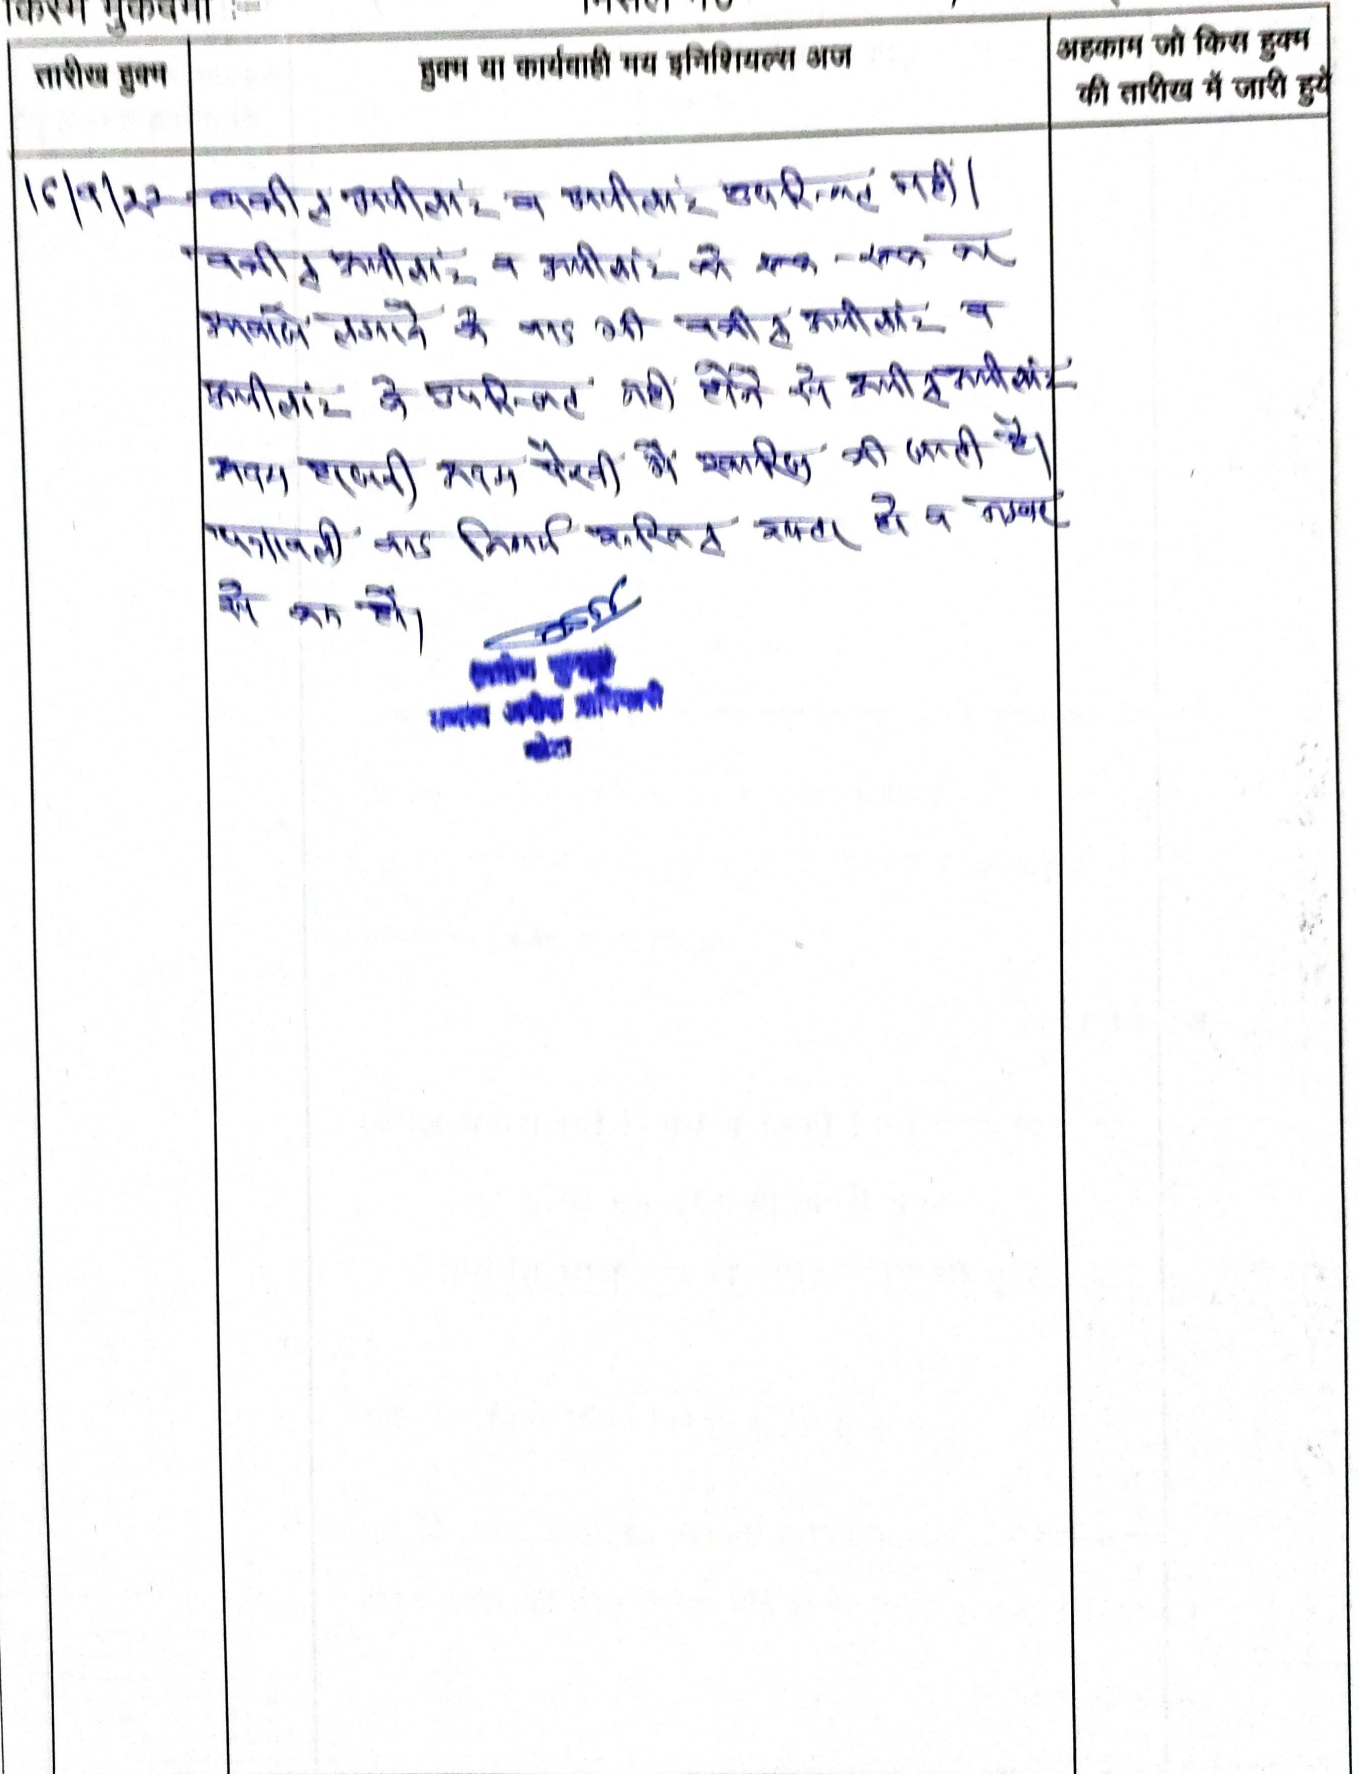 किस्म मुकदमा :-
मिसल नं०
तारीख हुक्म
हुक्म या कार्यवाही मय इनिशियल्स अज
अहकाम जो किस हुक्म
की तारीख में जारी हुये
16/9/22 वकील अपीलांट व अपीलांट उपस्थित नहीं।
वकील अपीलांट व अपीलांट को रूक-रूक कर
आवाजें लगाने के बाद भी वकील अपीलांट व
अपीलांट के उपस्थित नहीं होने से अपील अपीलांट
अदम हाजरी अदम पैरवी में खारिज की जाती है।
पत्रावली बाद दाखिल दफ्तर हो व नम्बर
से कम हो।
अपील
कोटा